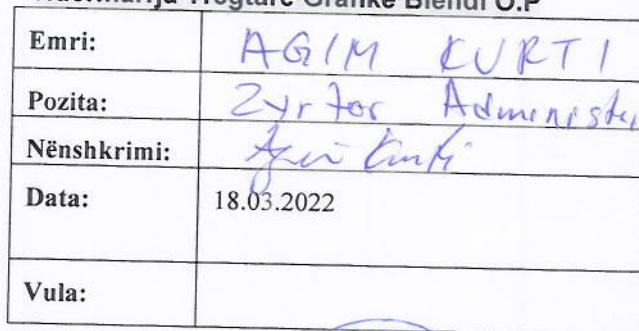 Tregtare Grafike Blendi O.P
Emri: AGIM KURTI
Pozita: Zyrtar Administr
Nënshkrimi: Agim Kurti
Data: 18.03.2022
Vula: